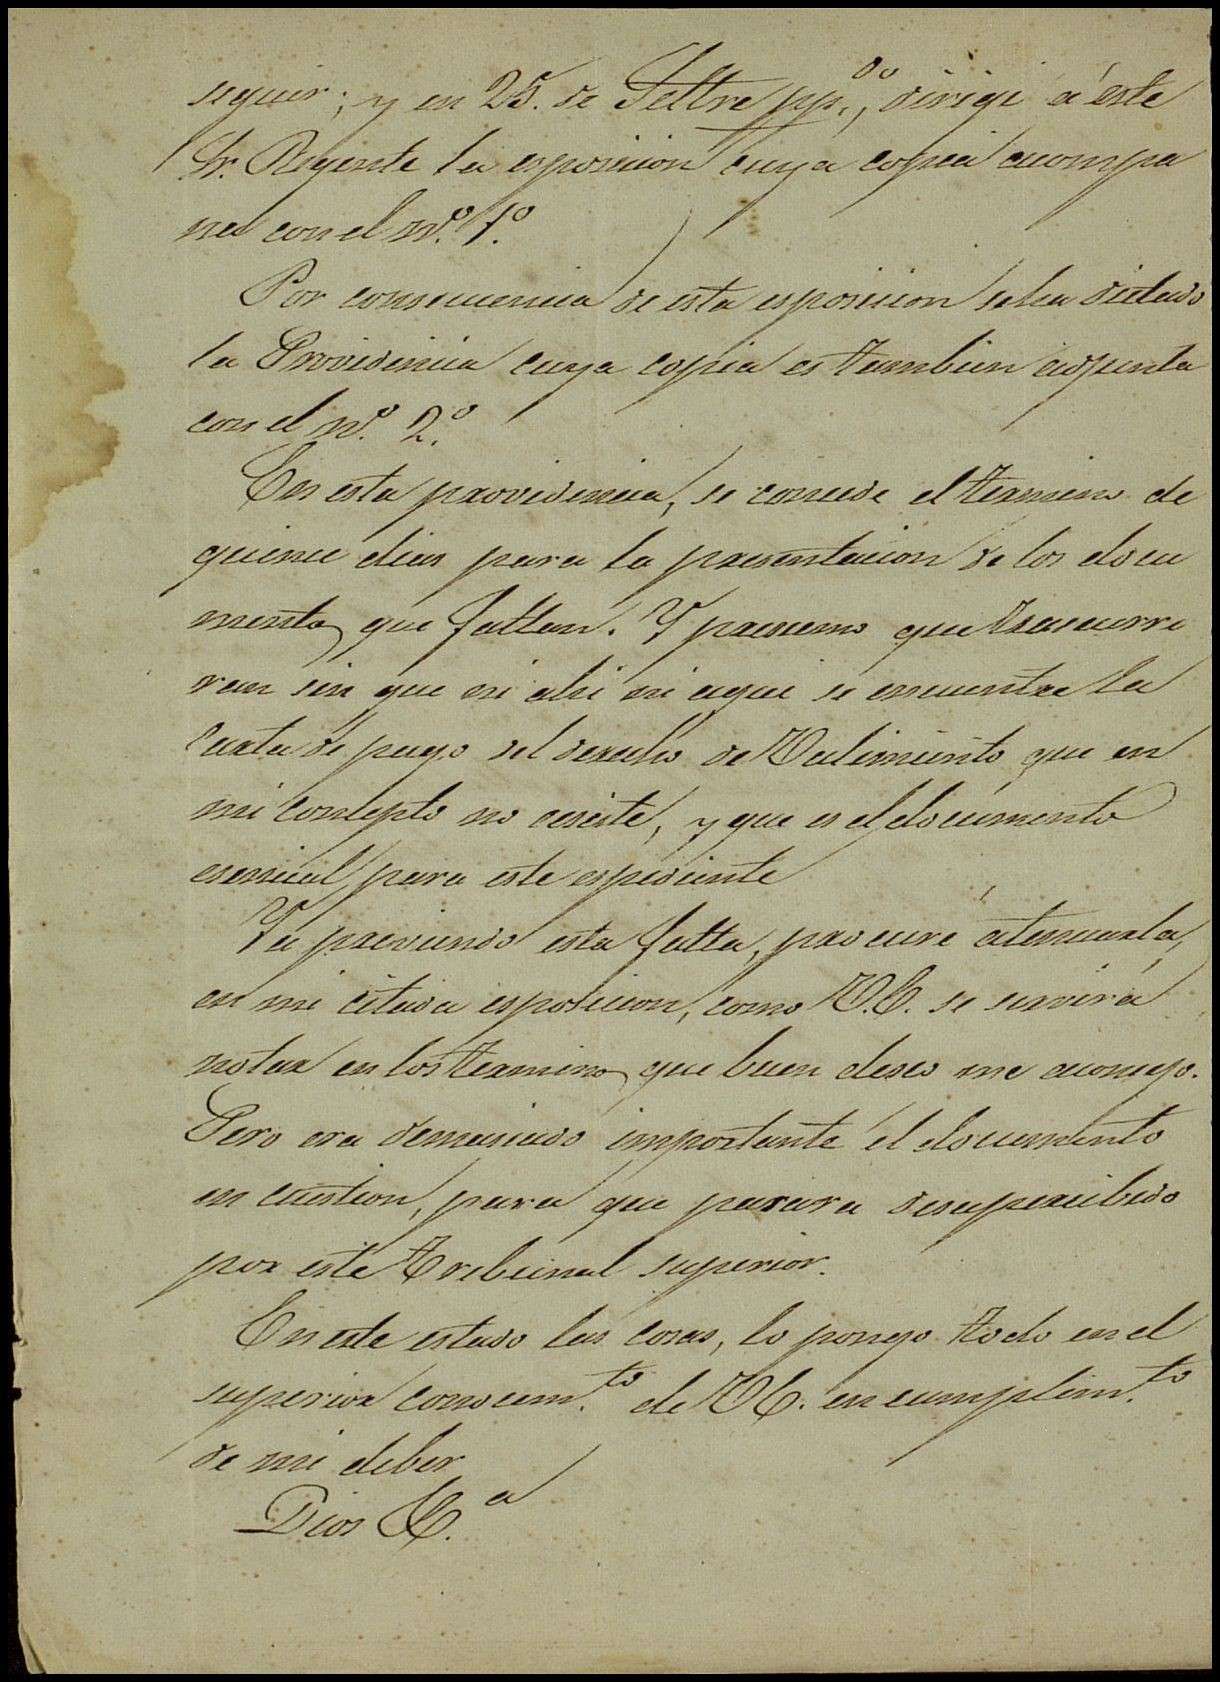 seguir; y en 25. de Setbre pp.do, dirigi á éste
Sr. Regente la esposicion cuya copia acompa
ña con el n.º 1.º
Por consecuencia de esta esposicion se ha dictado
la Providencia cuya copia es tambien adjunta
con el n.º 2.º
En esta providencia, se concede el termino de
quince dias para la presentacion de los docu
mentos que faltan. Y presumo que trascurri
ran sin que ni ahi ni aqui se encuentre la
Carta de pago del derecho de Valimiento que en
mi concepto no ecsiste, y que es el documento
esencial para este espediente
Ya previendo esta falta, procuré atenuarla,
en mi citada esposicion, como V.E. se servirá
notar en los terminos que buen deseo me aconsejo.
Pero era demasiado importante el documento
en cuestion, para que pasara desapercibido
por este Tribunal superior.
En este estado las cosas, lo pongo todo en el
superior conocim.to de V.E. en cumplim.to
de mi deber
Dios &.a